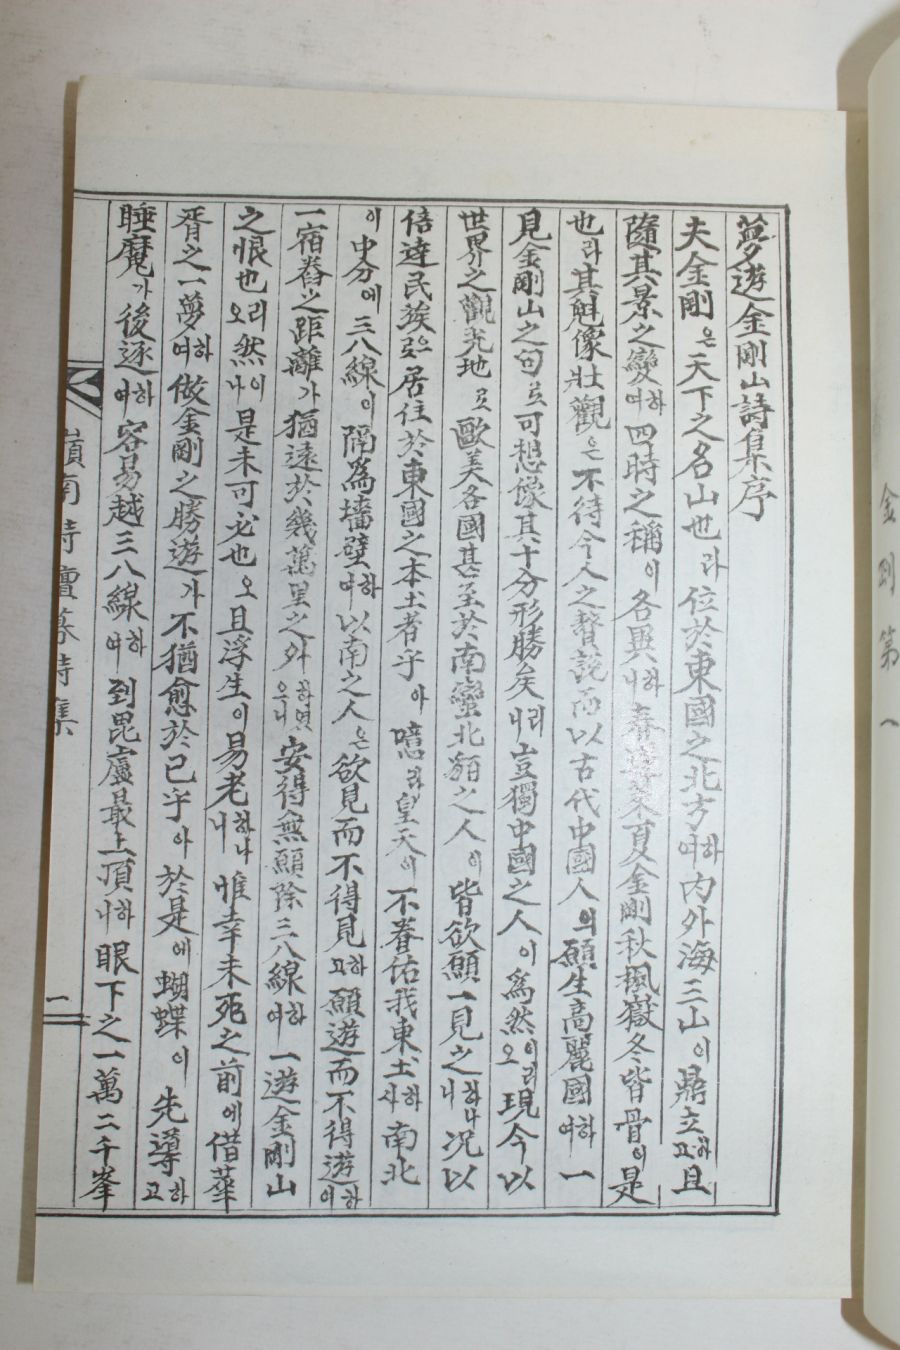 夢遊金剛山詩集序
夫金剛은天下之名山也라位於東國之北方하여內外海三山이鼎立하고且
隨其景之變하여四時之稱이各異하니春 夏 金剛秋楓嶽冬皆骨이是
也라其魁像壯觀은不待今人之贅說而以古代中國人의願生高麗國하여一
見金剛山之句로可想像其十分形勝矣리니豈獨中國之人이爲然이리오現今以
世界之觀光地로歐美各國甚至於南蠻北 之人이皆欲願一見之하나니况以
倍達民族으로居住於東國之本土者乎아噫라皇天이不眷佑我東土하사南北
이中分에三八線이隔爲墻壁하여以南之人은欲見而不得見하고願遊而不得遊하여
一宿舂之距離가猶遠於幾萬里之外하면은니安得無願除三八線하여一遊金剛山
之恨也리오然이나是未可必也오且浮生이易老하나니惟幸未死之前에借華
胥之一夢하여做金剛之勝遊가不猶愈於已乎아於是에蝴蝶이先導하고
睡魔가後逐하여容易越三八線하여到毘盧最上頂하니眼下之一萬二千峯
嶺南詩壇募詩集
一
金剛第一